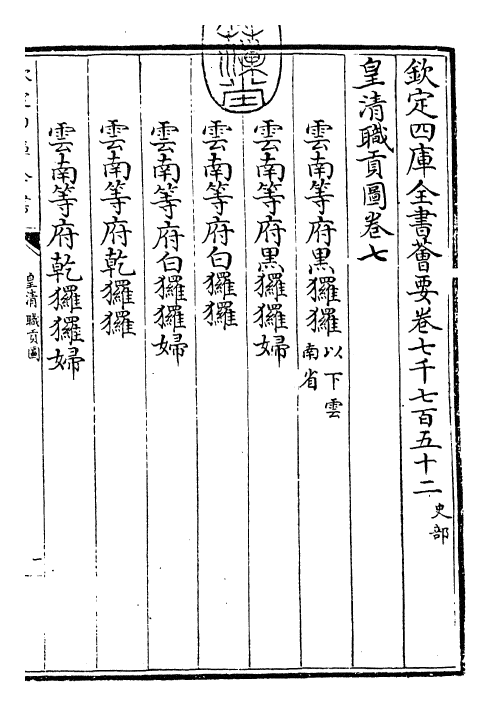 欽定四庫全書薈要卷七千七百五十二 史部
皇清職貢圖卷七
雲南等府黑玀玀 以下雲南省
雲南等府黑玀玀婦
雲南等府白玀玀
雲南等府白玀玀婦
雲南等府乾玀玀
雲南等府乾玀玀婦
皇清職貢圖
一